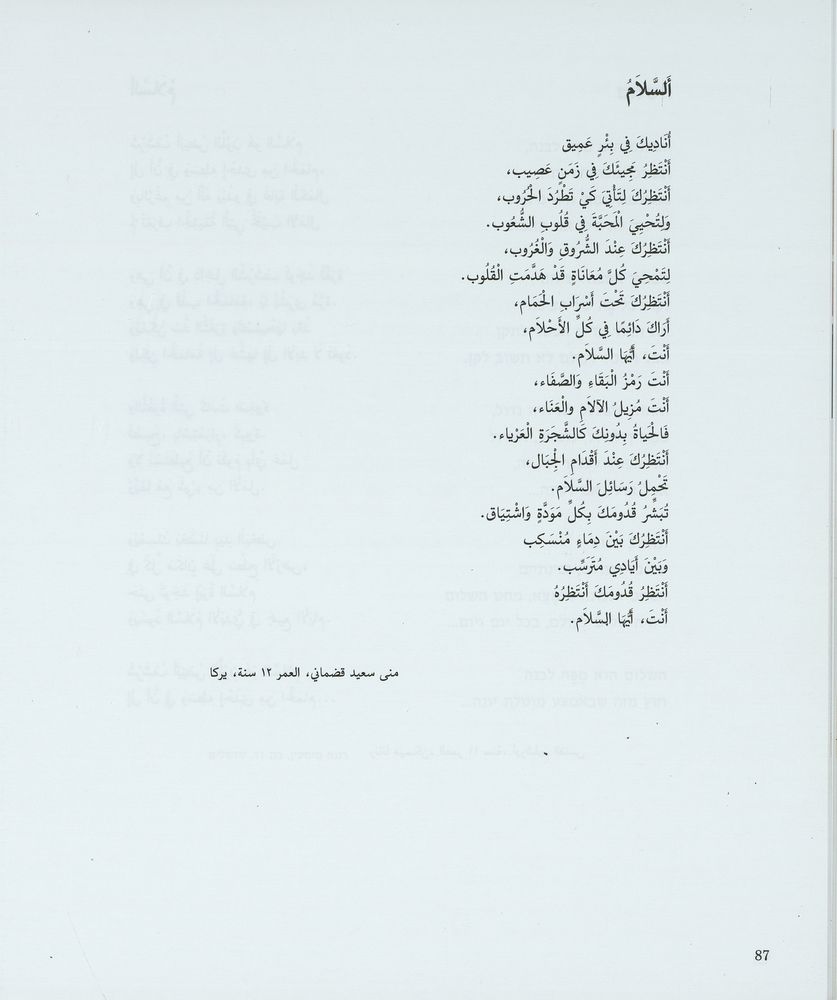 أَلسَّلاَمُ
أُنَادِيكَ فِي بِئْرٍ عَمِيق
أَنْتَظِرُ مَجِيئَكَ فِي زَمَنٍ عَصِيب،
أَنْتَظِرُكَ لِتَأْتِيَ كَيْ تَطْرُدَ الْحُرُوب،
وَلِتُحْيِيَ الْمَحَبَّةَ فِي قُلُوبِ الشُّعُوب.
أَنْتَظِرُكَ عِنْدَ الشُّرُوقِ وَالْغُرُوب،
لِتَمْحِيَ كُلَّ مُعَانَاةٍ قَدْ هَدَّمَتِ الْقُلُوب.
أَنْتَظِرُكَ تَحْتَ أَسْرَابِ الْحَمَام،
أَرَاكَ دَائِمًا فِي كُلِّ الأَحْلَام،
أَنْتَ، أَيُّهَا السَّلاَم.
أَنْتَ رَمْزُ الْبَقَاءِ وَالصَّفَاء،
أَنْتَ مُزِيلُ الآلاَمِ والْعَنَاء،
فَالْحَيَاةُ بِدُونِكَ كَالشَّجَرَةِ الْعَرْيَاء.
أَنْتَظِرُكَ عِنْدَ أَقْدَامِ الْجِبَال،
تَحْمِلُ رَسَائِلَ السَّلاَم.
تُبَشِّرُ قُدُومَكَ بِكُلِّ مَوَدَّةٍ وَاشْتِيَاق.
أَنْتَظِرُكَ بَيْنَ دِمَاءٍ مُنْسَكِب
وَبَيْنَ أَيَادِي مُتَرَسِّب.
أَنْتَظِرُ قُدُومَكَ أَنْتَظِرُهُ
أَنْتَ، أَيُّهَا السَّلاَم.
منى سعيد قضماني، العمر ١٢ سنة، يركا
87